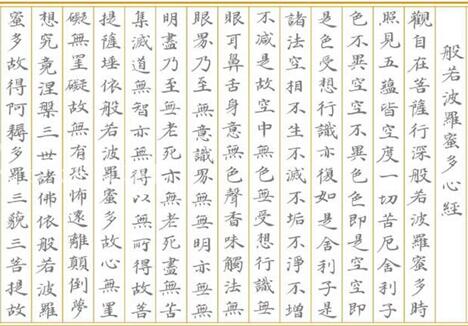 般若波羅蜜多心經
觀自在菩薩行深般若波羅蜜多時
照見五蘊皆空度一切苦厄舍利子
色不異空空不異色色即是空空即
是色受想行識亦復如是舍利子是
諸法空相不生不滅不垢不淨不增
不減是故空中無色無受想行識無
眼耳鼻舌身意無色聲香味觸法無
眼界乃至無意識界無無明亦無無
明盡乃至無老死亦無老死盡無苦
集滅道無智亦無得以無所得故菩
提薩埵依般若波羅蜜多故心無罣
礙無罣礙故無有恐怖遠離顛倒夢
想究竟涅槃三世諸佛依般若波羅
蜜多故得阿耨多羅三藐三菩提故